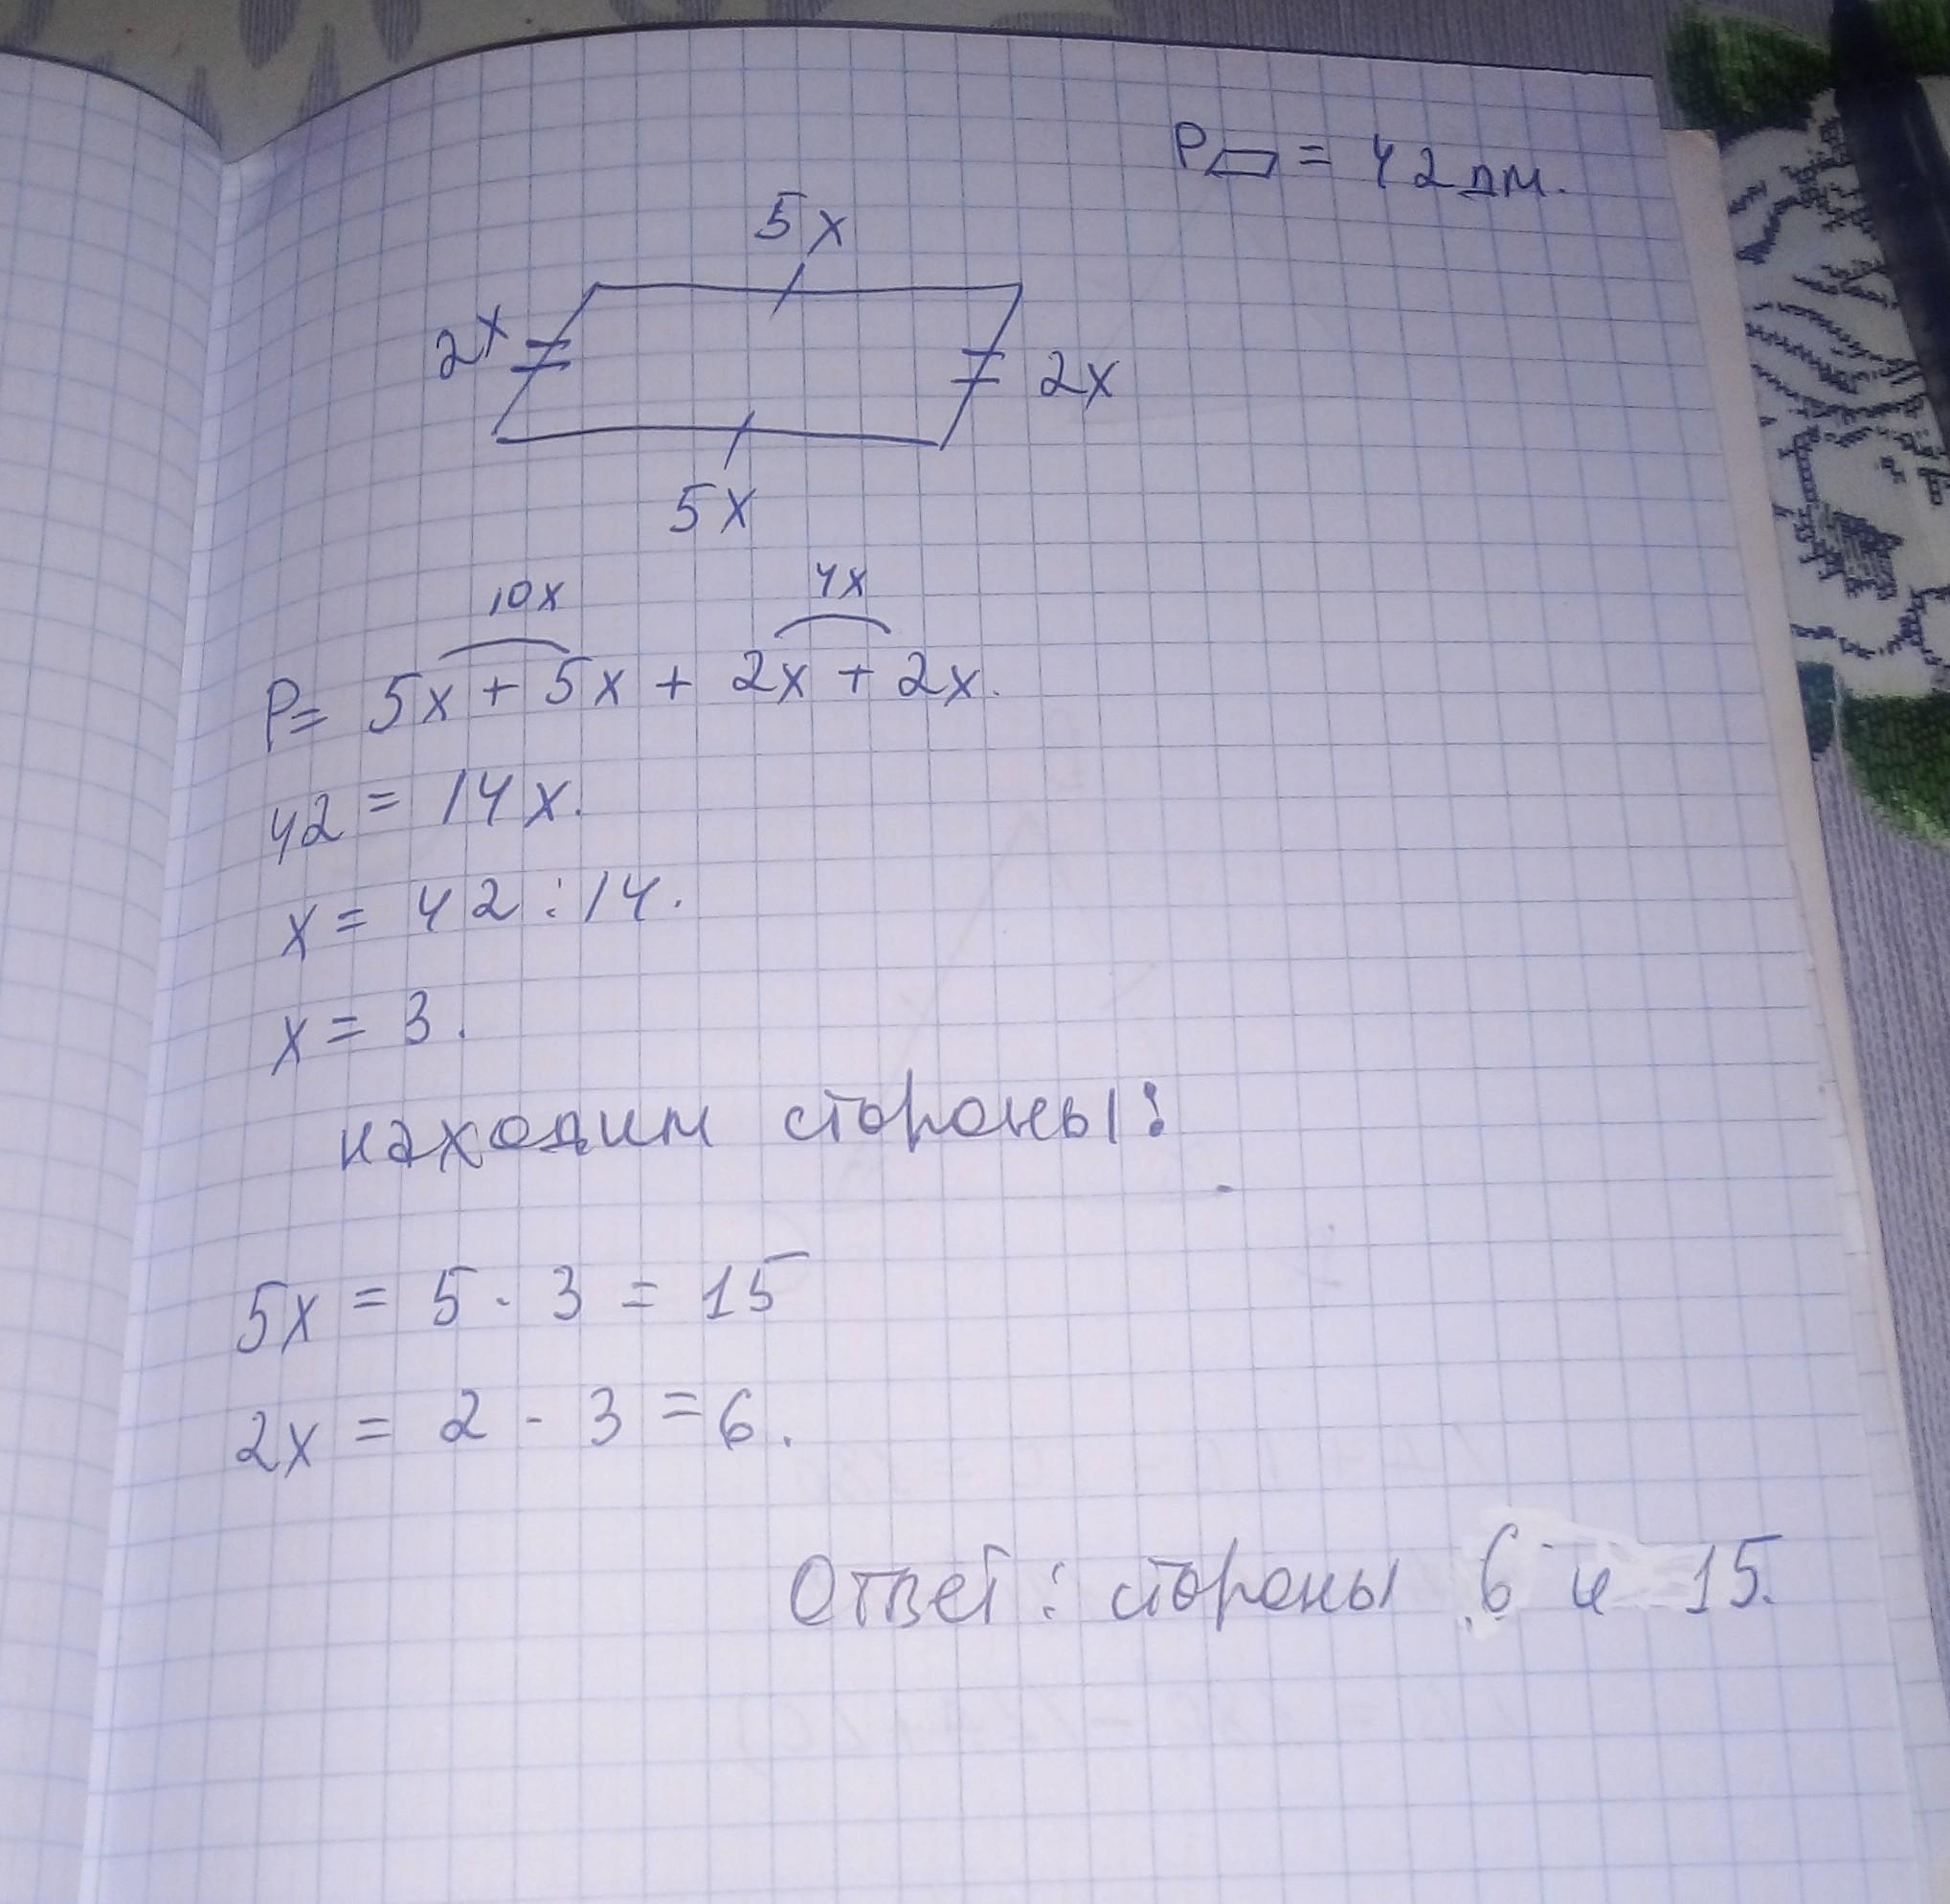 P▱ = 42 дм.
5x
2x
2x
5x
10x 4x
P= 5x + 5x + 2x + 2x.
42 = 14x.
x = 42 : 14.
x = 3.
находим стороны:
5x = 5 · 3 = 15
2x = 2 · 3 = 6.
Ответ: стороны 6 и 15.